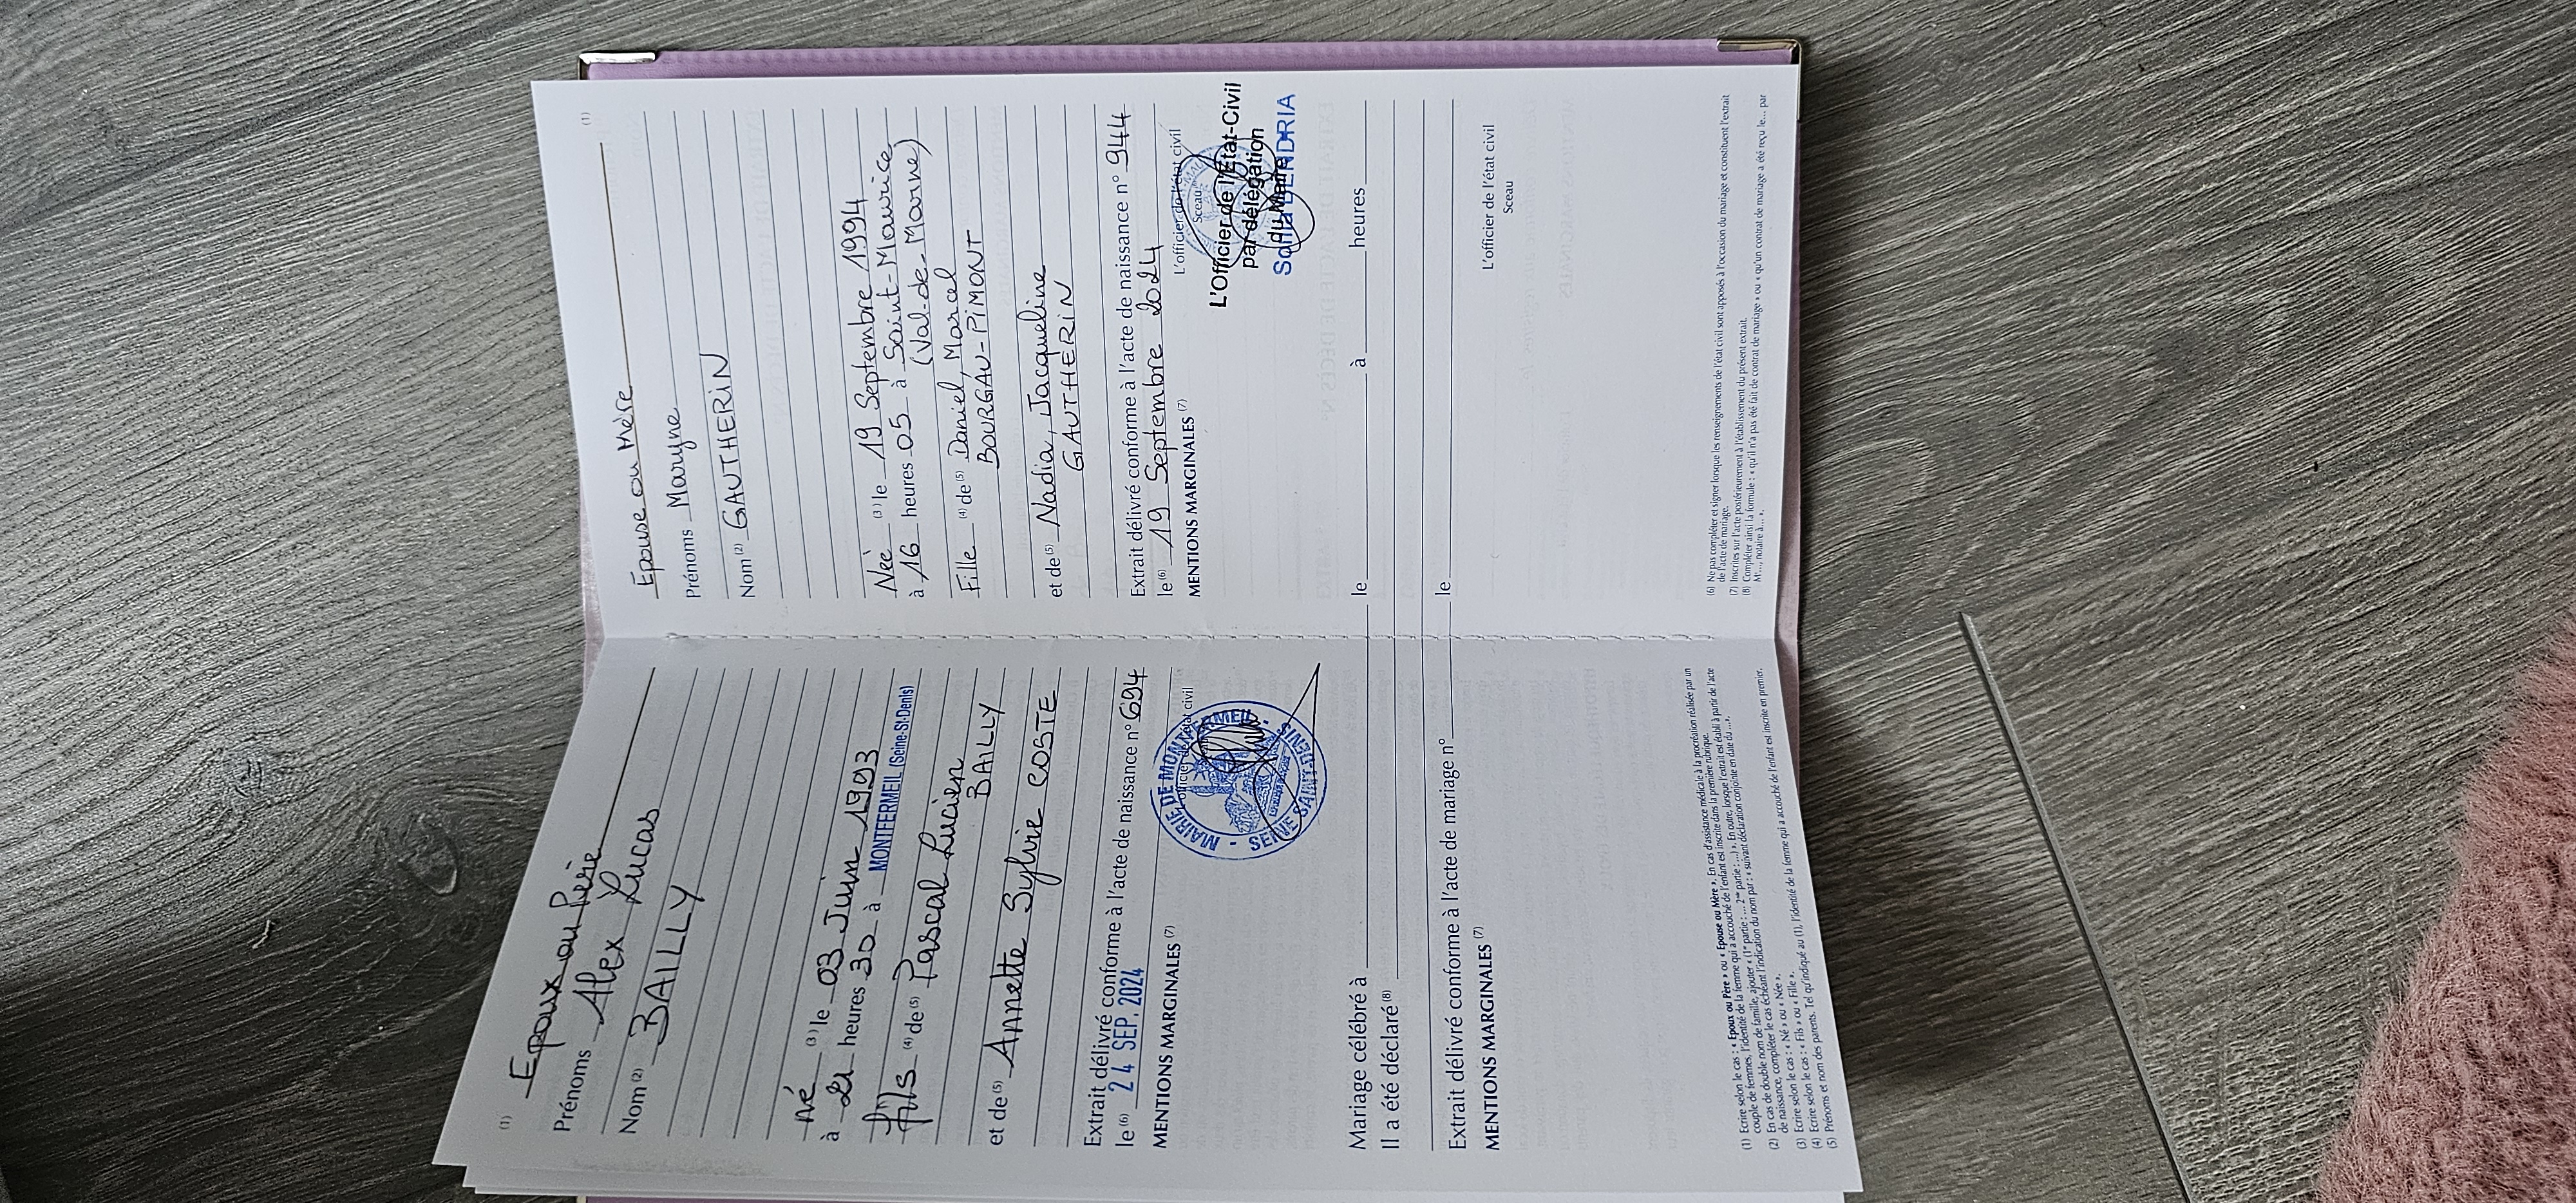 (1) Epoux ou Père
Prénoms Alex Lucas
Nom (2) BAILLY
Né (3) le 03 Juin 1993
à 21 heures 30 à MONTFERMEIL (Seine-St-Denis)
fils (4) de (5) Pascal Lucien
BAILLY
et de (5) Annette Sylvie COSTE
Extrait délivré conforme à l'acte de naissance n° 694
le (6) 24 SEP. 2024
L'officier de l'état civil
MAIRIE DE MONTFERMEIL - SEINE SAINT-DENIS -
MENTIONS MARGINALES (7)
(1)
Epouse ou Mère
Prénoms Maryne
Nom (2) GAUTHERIN
Née (3) le 19 Septembre 1994
à 16 heures 05 à Saint-Maurice
(Val-de-Marne)
Fille (4) de (5) Daniel, Marcel
BOURGAU-PIMONT
et de (5) Nadia, Jacqueline
GAUTHERIN
Extrait délivré conforme à l'acte de naissance n° 944
le (6) 19 Septembre 2024
L'officier de l'état civil
Sceau
MENTIONS MARGINALES (7)
L'Officier de l'État-Civil
par délégation
du Maire
Mariage célébré à le à heures
Il a été déclaré (8)
Extrait délivré conforme à l'acte de mariage n° le
MENTIONS MARGINALES (7)
L'officier de l'état civil
Sceau
(1) Ecrire selon le cas : « Epoux ou Père » ou « Epouse ou Mère ». En cas d'assistance médicale à la procréation réalisée par un
couple de femmes, l'identité de la femme qui a accouché de l'enfant est inscrite dans la première rubrique.
(2) En cas de double nom de famille, ajouter « (1re partie : ... 2me partie : ...) ». En outre, lorsque l'extrait est établi à partir de l'acte
de naissance, compléter le cas échéant l'indication du nom par : « suivant déclaration conjointe en date du ... ».
(3) Ecrire selon le cas : « Né » ou « Née ».
(4) Ecrire selon le cas : « Fils » ou « Fille ».
(5) Prénoms et nom des parents. Tel qu'indiqué au (1), l'identité de la femme qui a accouché de l'enfant est inscrite en premier.
(6) Ne pas compléter et signer lorsque les renseignements de l'état civil sont apposés à l'occasion du mariage et constituent l'extrait
de l'acte de mariage.
(7) Inscrites sur l'acte postérieurement à l'établissement du présent extrait.
(8) Compléter ainsi la formule : « qu'il n'a pas été fait de contrat de mariage » ou « qu'un contrat de mariage a été reçu le... par
M..., notaire à... ».